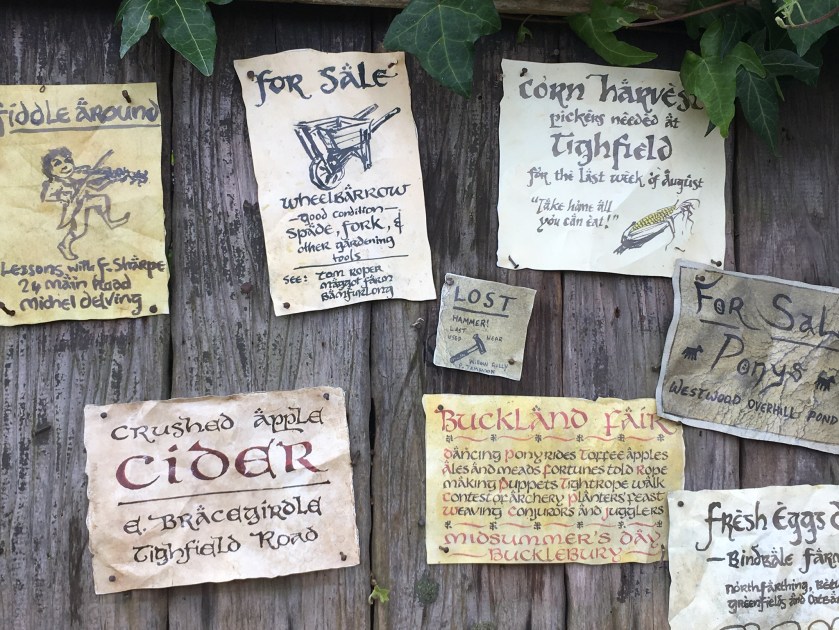 Fiddle Around
Lessons with F. Sharpe
24 Main Road
Michel Delving
For Sale
Wheelbarrow
—good condition—
Spade, Fork, &
other gardening
tools
See: Tom Roper
Maggot Farm
Bamfurlong
Corn Harvest
pickers needed at
Tighfield
for the last week of August
"Take home all
you can eat!"
LOST
HAMMER!
LAST
USED NEAR
For Sale
Ponys
Westwood Overhill Pond
Crushed Apple
Cider
E. Bracegirdle
Tighfield Road
Buckland Fair
Dancing Pony rides Toffee apples
Ales and meads Fortunes told Rope
making Puppets Tightrope walk
Contest of Archery Planters feast
Weaving Conjurors and Jugglers
Midsummer's Day
Bucklebury
Fresh Eggs
—Bindbale Farm
Northfarthing,
Greenfields and